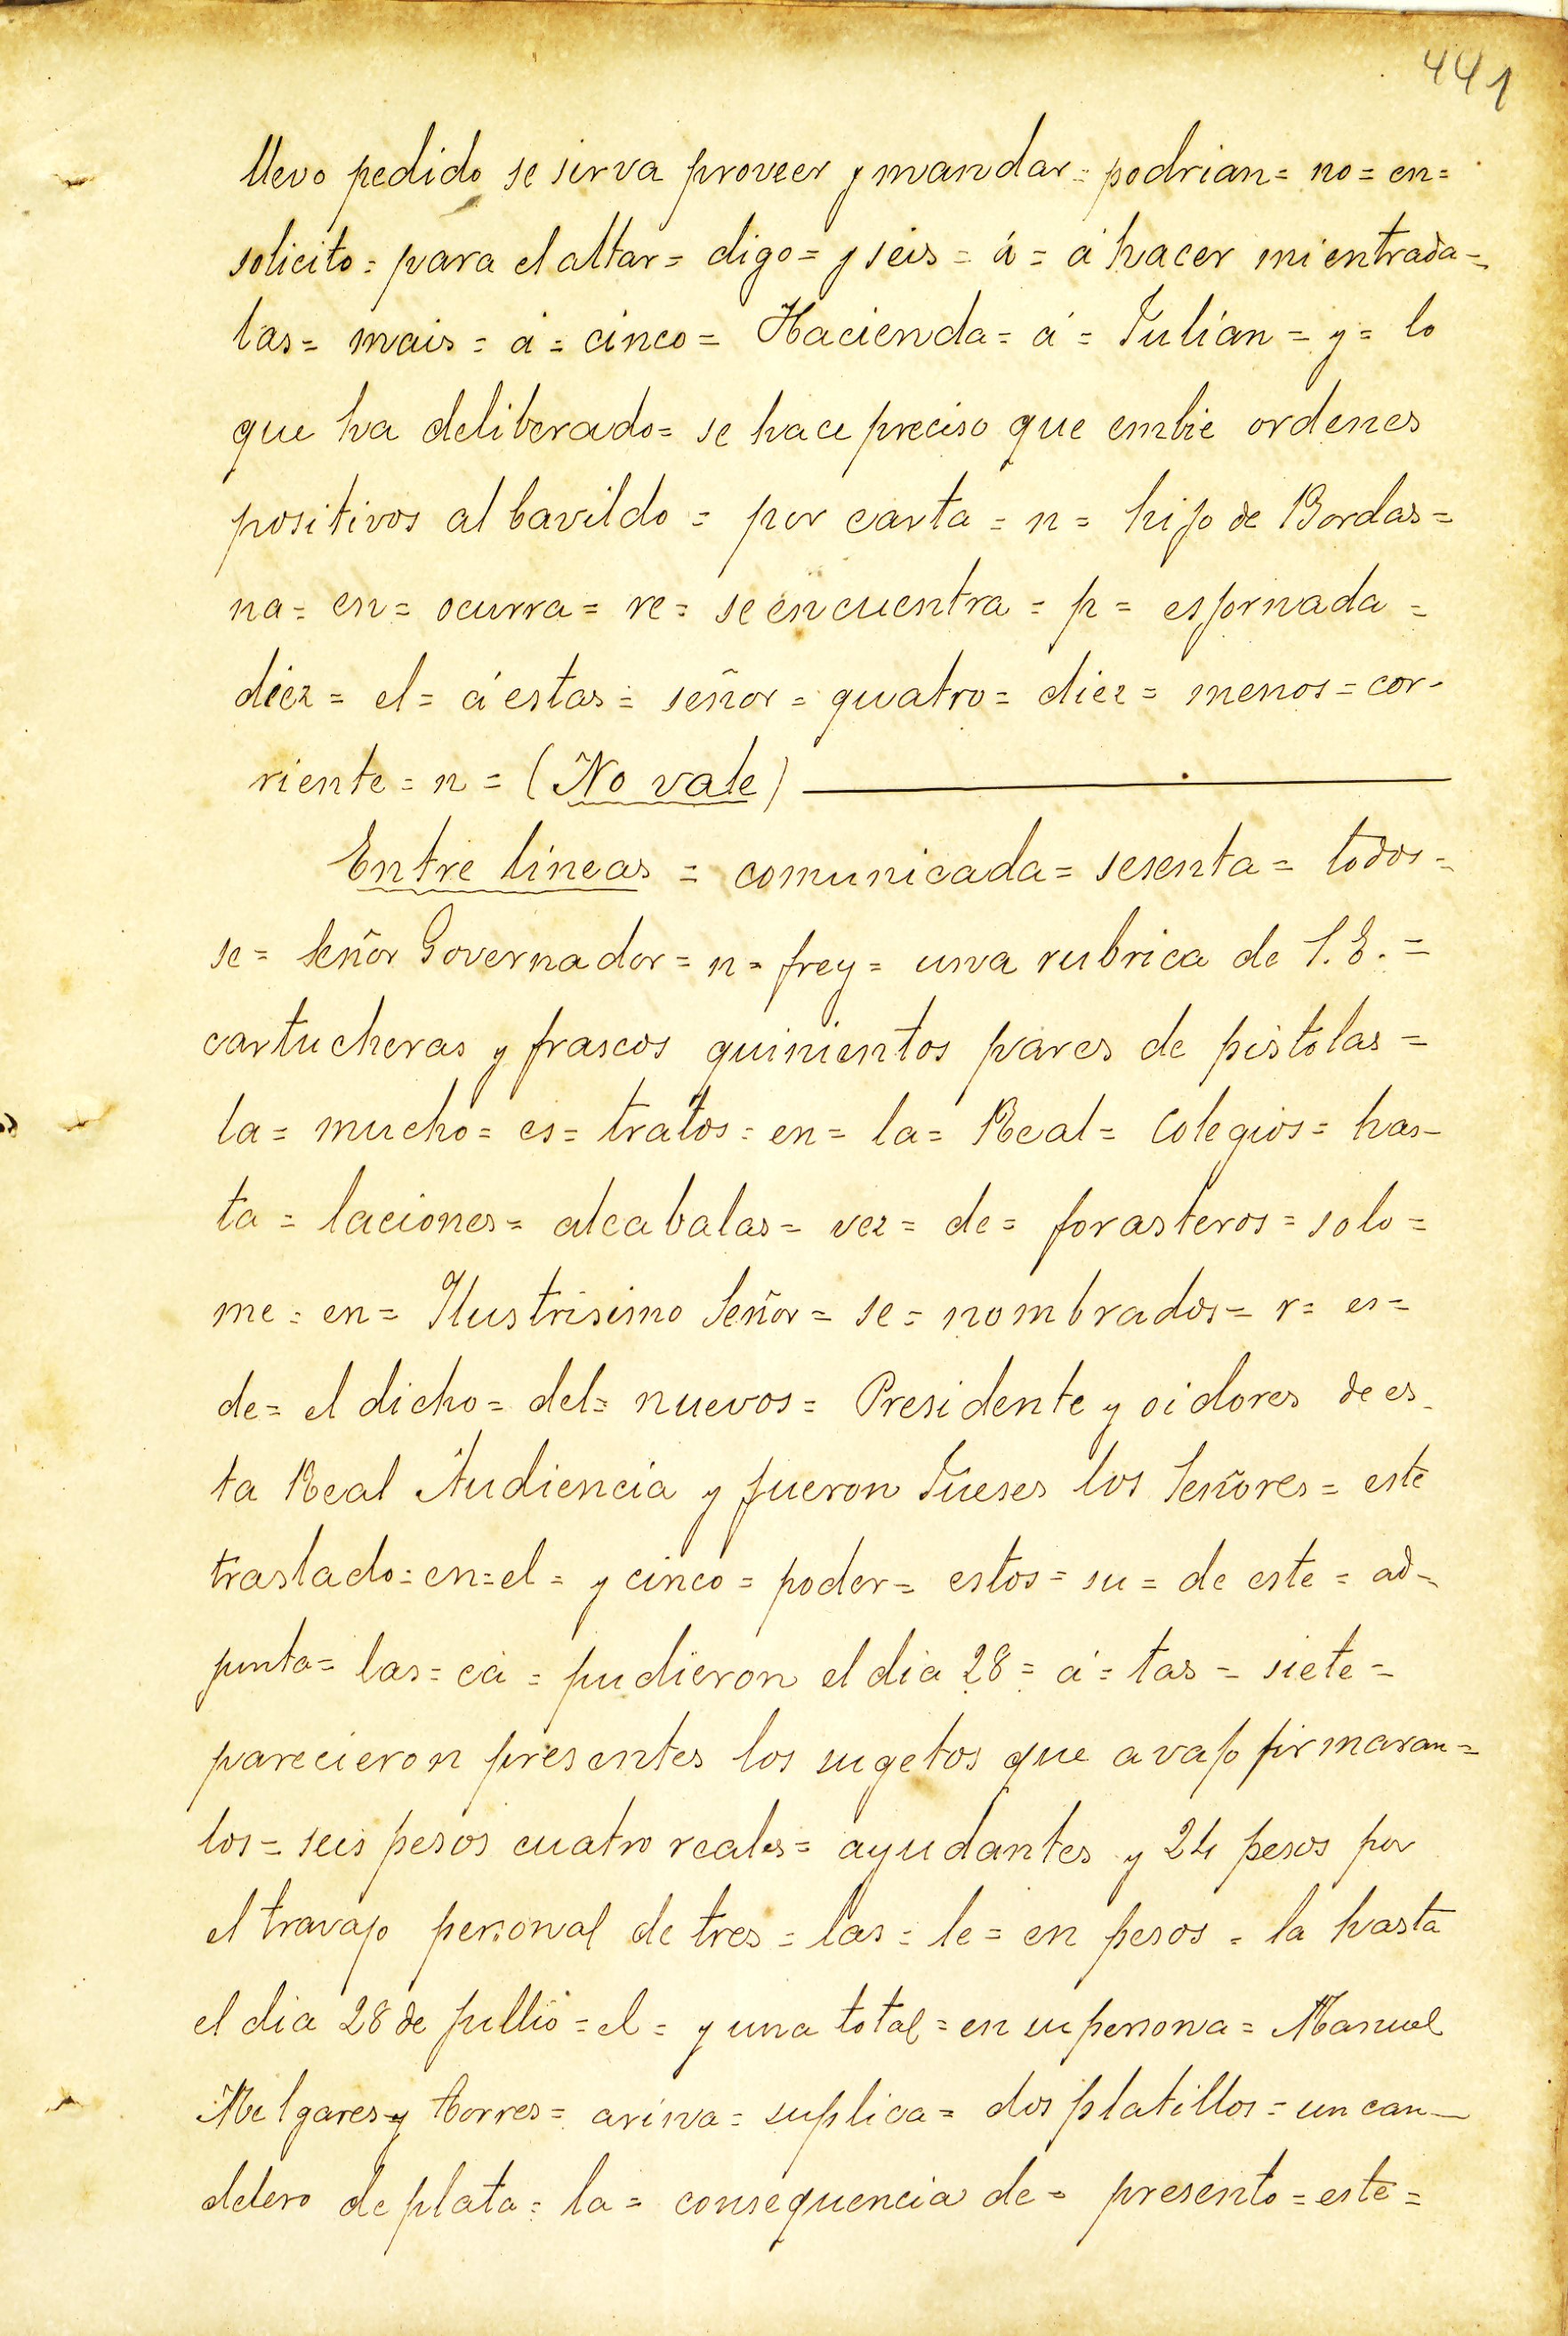 441
llevo pedido se sirva proveer y mandar = podrian = no = en =
solicito = para el altar = digo = y seis = á = á hacer mi entrada =
las = mais = á = cinco = Hacienda = á = Julián = y = lo
que ha deliberado = se hace preciso que embie ordenes
positivos al Cavildo = por carta = n = hijo de Bordas =
na = en = ocurra = re = se encuentra = p = es jornada =
diez = el = á estas = señor = quatro = diez = menos = cor-
riente = n = (No vale)
Entre líneas = comunicada = sesenta = todos =
se = Señor Governador = n = frey = una rubrica de S. E. =
cartucheras y frascos quinientos pares de pistolas =
la = mucho = es = tratos = en = la = Real = Colegios = has-
ta = laciones = alcabalas = vez = de = forasteros = solo =
me = en = Ilustrisimo Señor = se = nombrados = r = es =
de = el dicho = del = nuevos = Presidente y oidores de es-
ta Real Audiencia y fueron Jueses los Señores = este
traslado = en = el = y cinco = poder = estos = su = de este = ad =
junta = las = ca = pudieron el dia 28 = á = tas = siete =
parecieron presentes los sugetos que avajo firmaran =
los = seis pesos cuatro reales = ayudantes y 24 pesos por
el travajo personal de tres = las = le = en pesos = la hasta
el dia 28 de Jullio = el = y una total = en su persona = Manuel
Melgares y Torres = arina = suplica = dos platillos = un can-
delero de plata = la = consequencia de = presento = este =